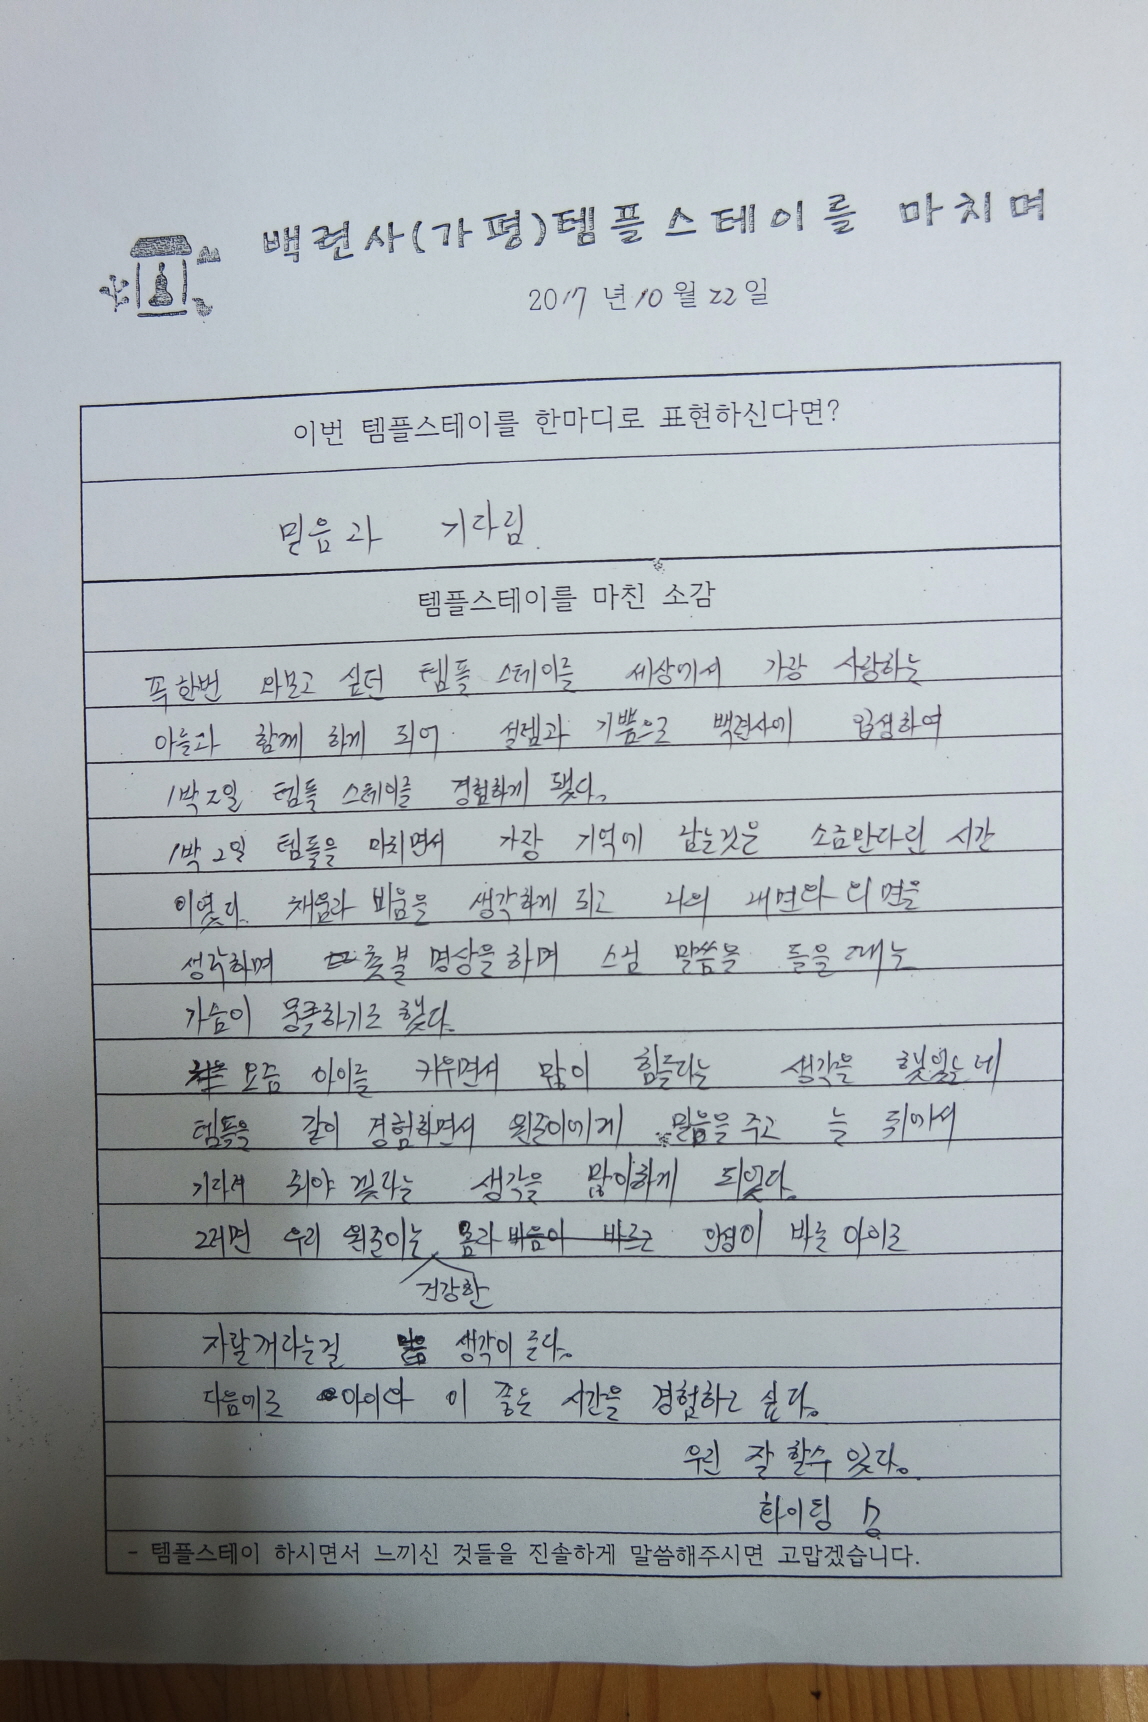 백련사(가평)템플스테이를 마치며
2017년 10월 22일
이번 템플스테이를 한마디로 표현하신다면?
믿음과 기다림.
템플스테이를 마친 소감
꼭 한번 와보고 싶던 템플 스테이를 세상에서 가장 사랑하는
아들과 함께 하게 되어 설렘과 기쁨으로 백련사에 입성하여
1박2일 템플 스테이를 경험하게 됐다.
1박 2일 템플을 마치면서 가장 기억에 남는것은 소금만다린 시간
이였다. 채움과 비움을 생각하게 되고 나의 내면과 외면을
생각하며 촛불 명상을 하며 스님 말씀을 들을때는
가슴이 뭉클하기도 했다.
요즘 아이를 키우면서 많이 힘들다는 생각을 했었는데
템플을 같이 경험하면서 원준이에게 믿음을 주고 늘 뒤에서
기다려 줘야 겠다는 생각을 많이하게 되었다.
그러면 우리 원준이는 몸과 마음이 바르고 인성이 바른 아이로
건강한
자랄꺼라는걸 생각이 든다.
다음에도 아이와 이 좋은 시간을 경험하고 싶다.
우린 잘 할수 있다.
화이팅
- 템플스테이 하시면서 느끼신 것들을 진솔하게 말씀해주시면 고맙겠습니다.